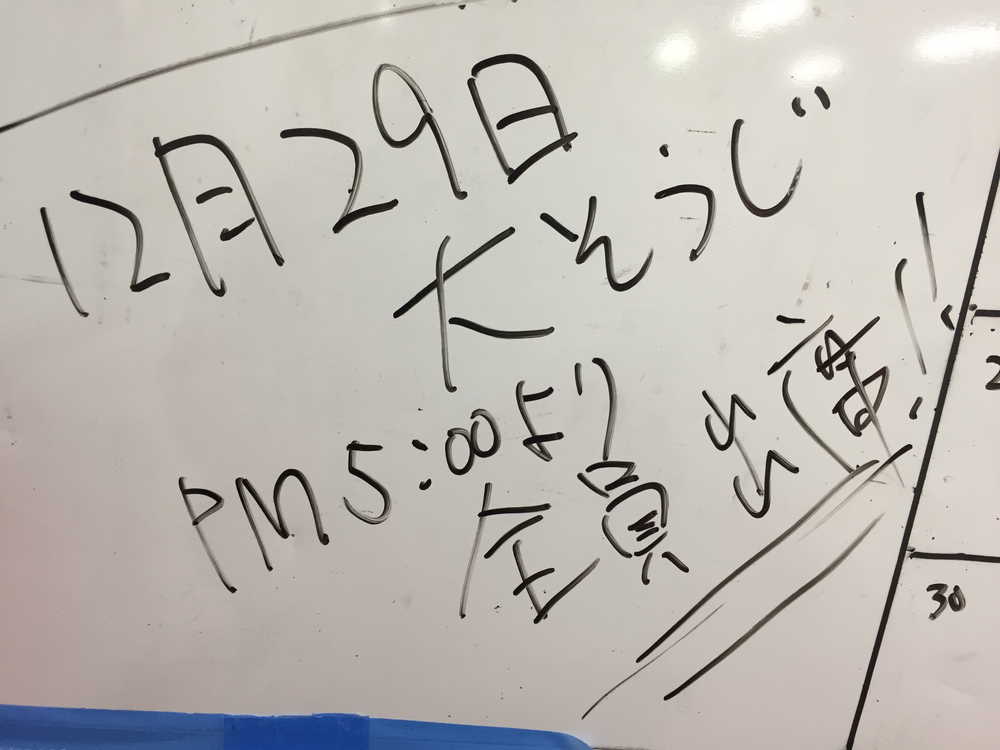 12月29日
大そうじ
PM5:00より
全員出席!!
2
30